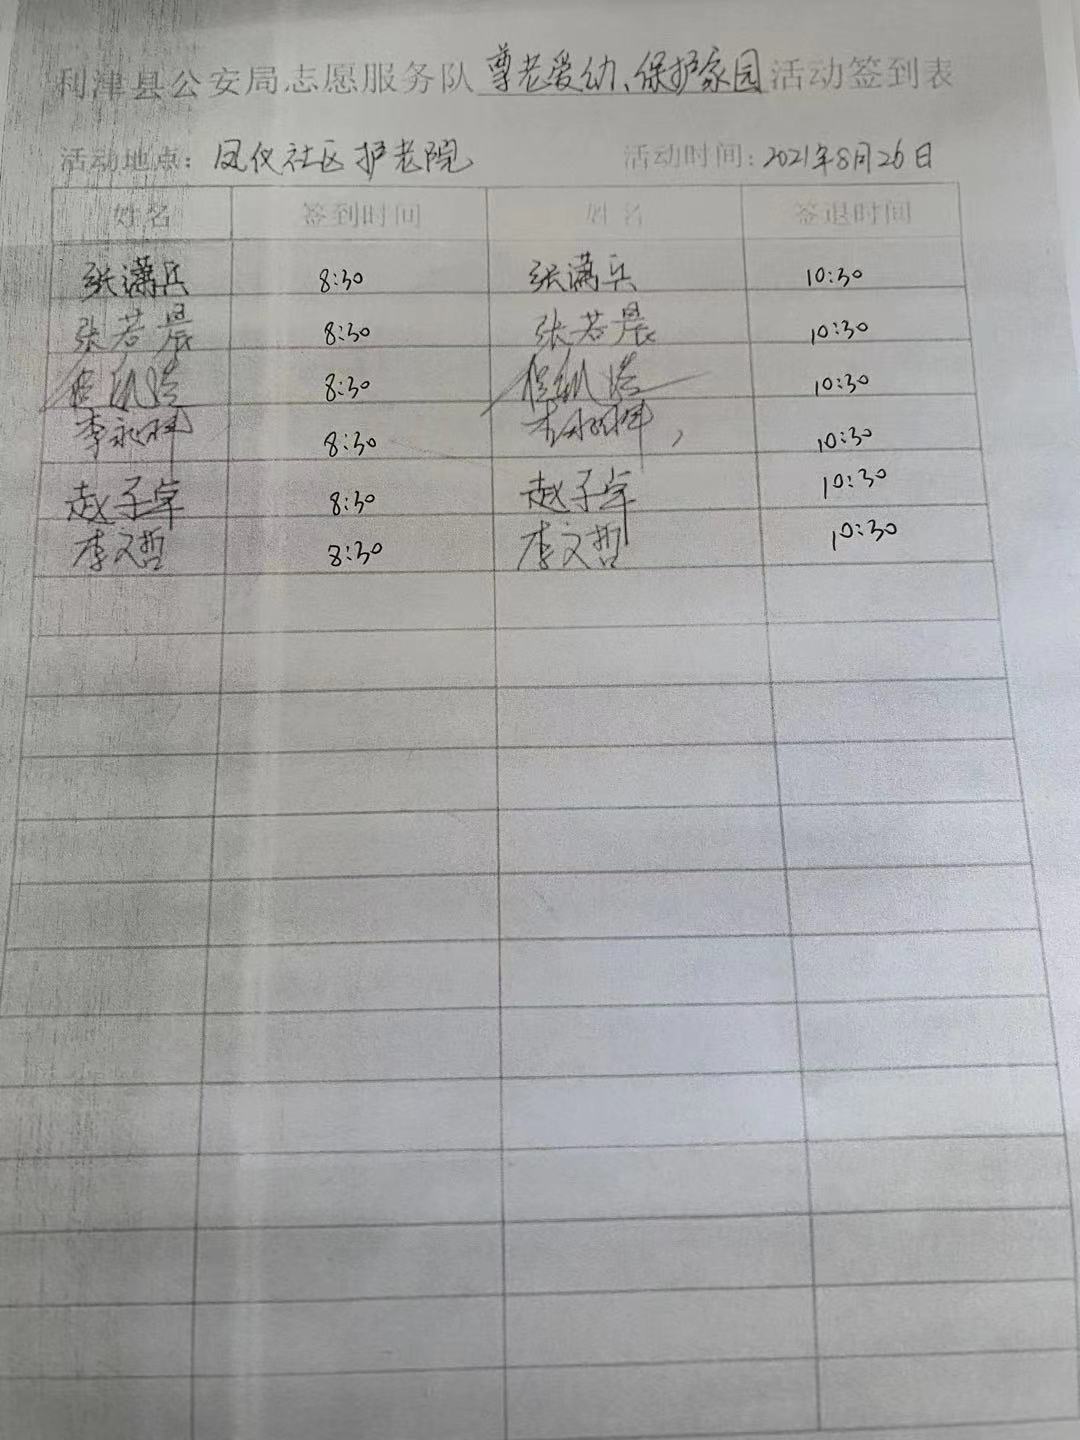 利津县公安局志愿服务队尊老爱幼、保护家园活动签到表
活动地点：凤仪社区护老院 活动时间：2021年8月26日
姓名 签到时间 姓名 签退时间
张潇兵 8:30 张潇兵 10:30
张若晨 8:30 张若晨 10:30
8:30 10:30
李永祥 8:30 李永祥 10:30
赵子卓 8:30 赵子卓 10:30
李文哲 8:30 李文哲 10:30